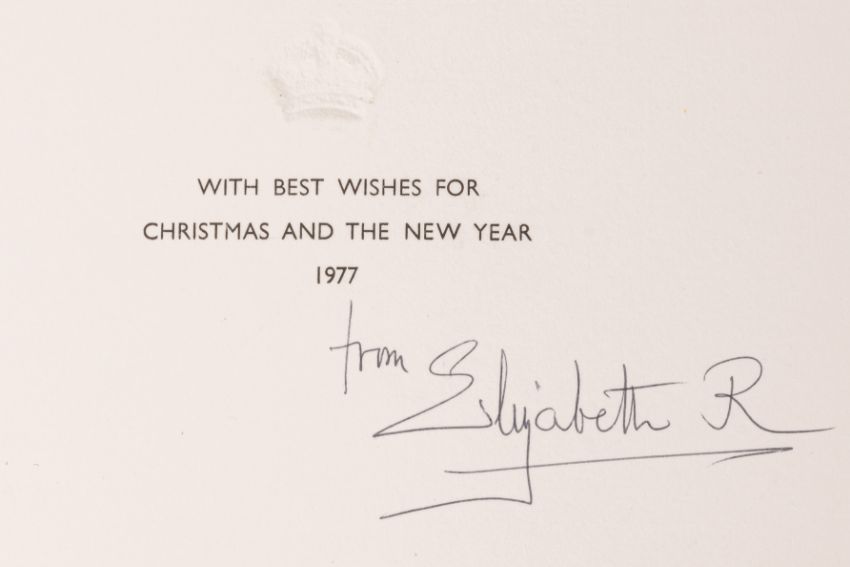 WITH BEST WISHES FOR
CHRISTMAS AND THE NEW YEAR
1977
from Elizabeth R